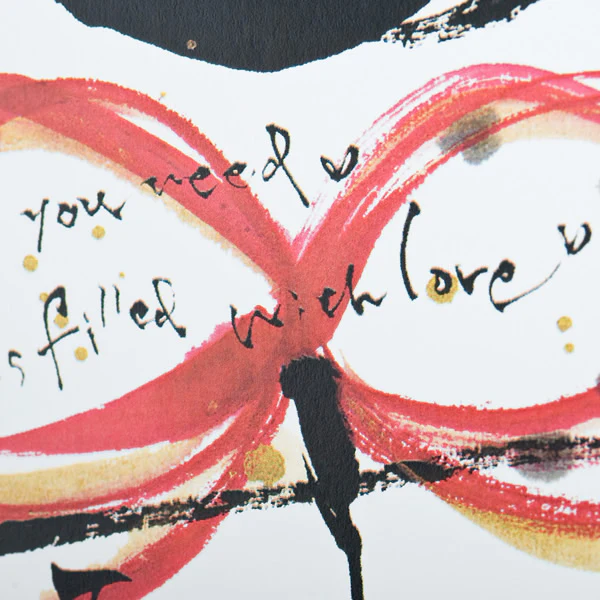 you need
filled with love